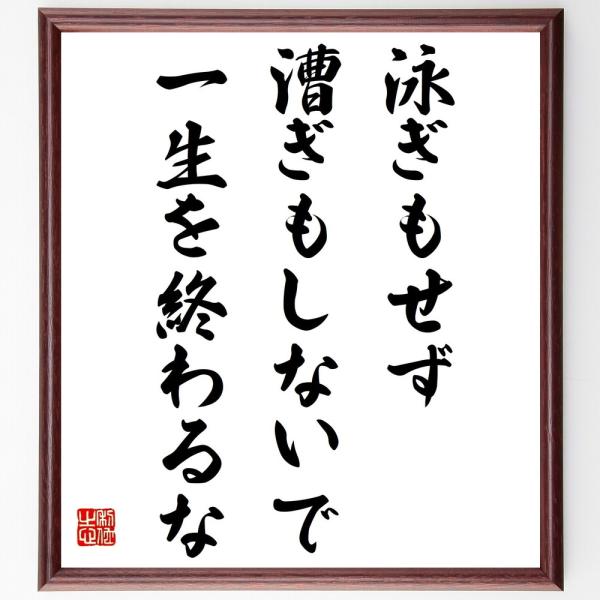 泳ぎもせず
漕ぎもしないで
一生を終わるな